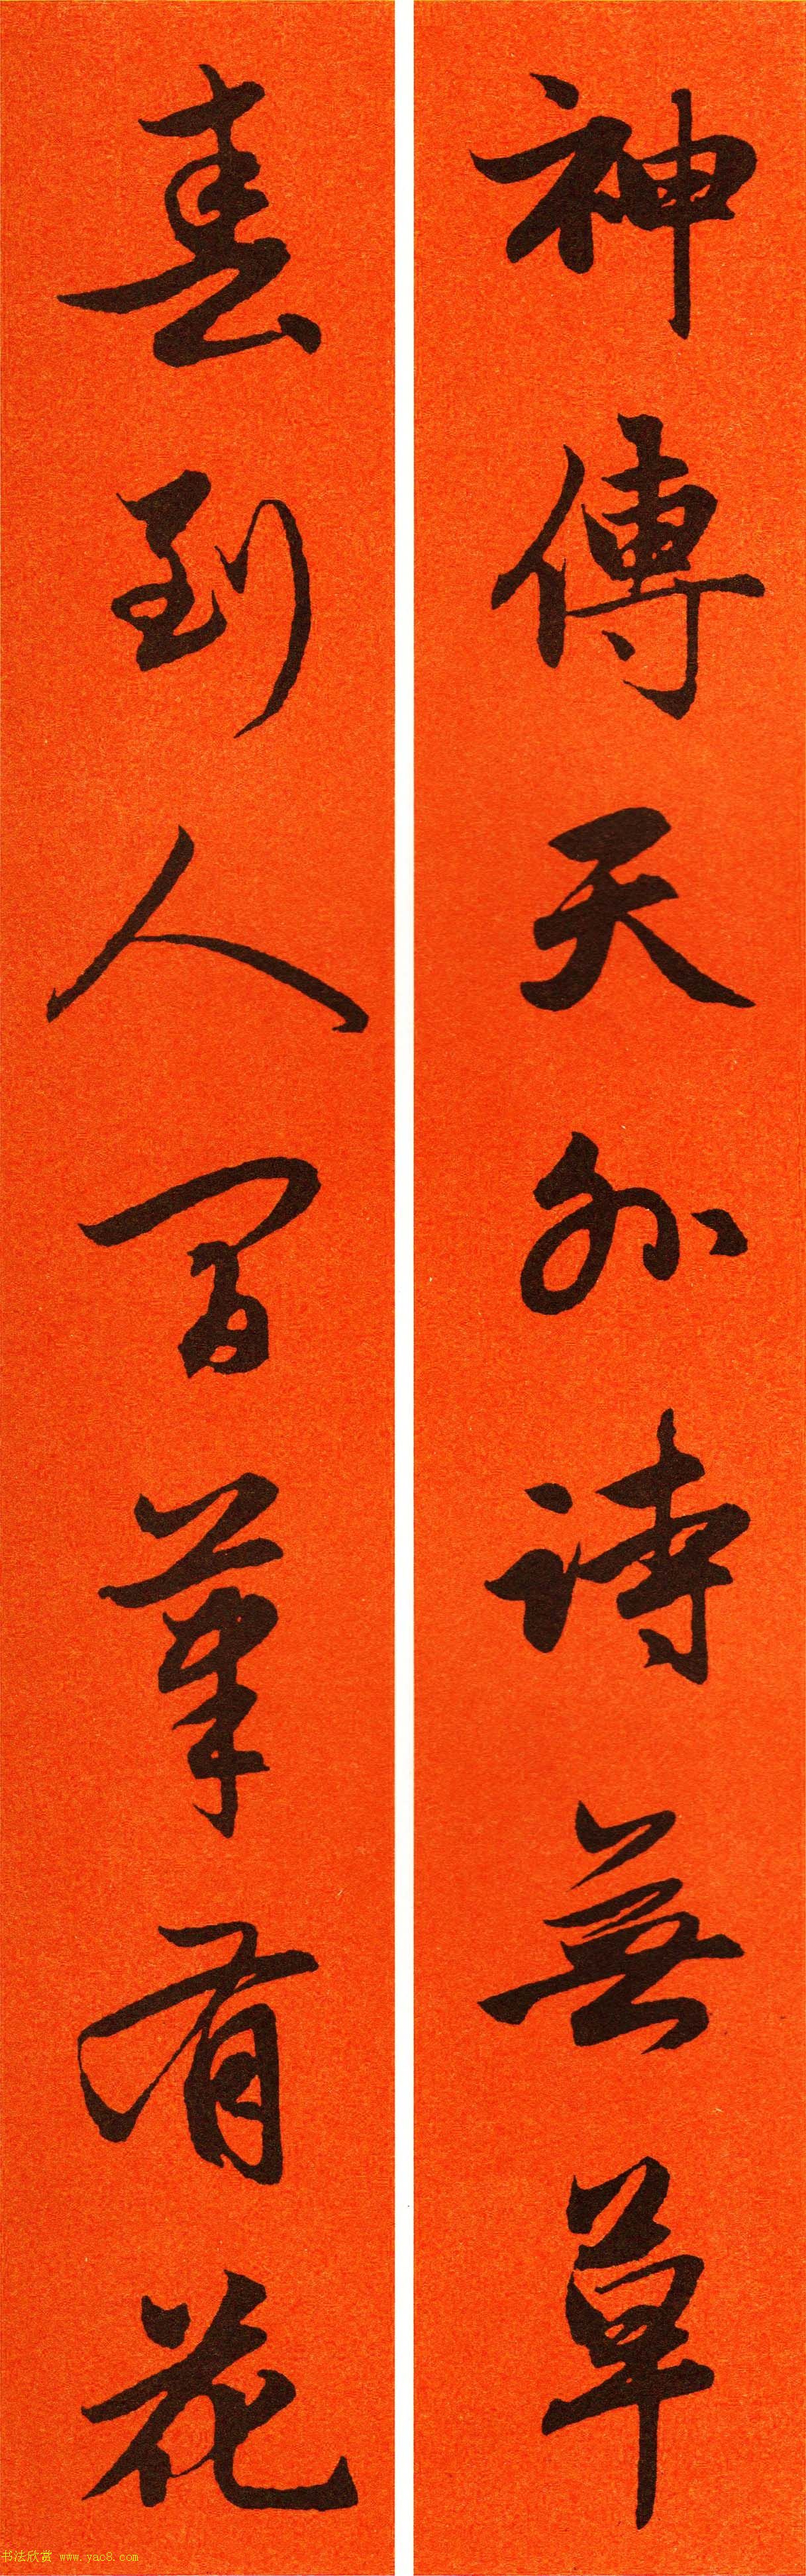 神傳天外詩無草
春到人間筆有花
书法欣赏 www.yac8.com